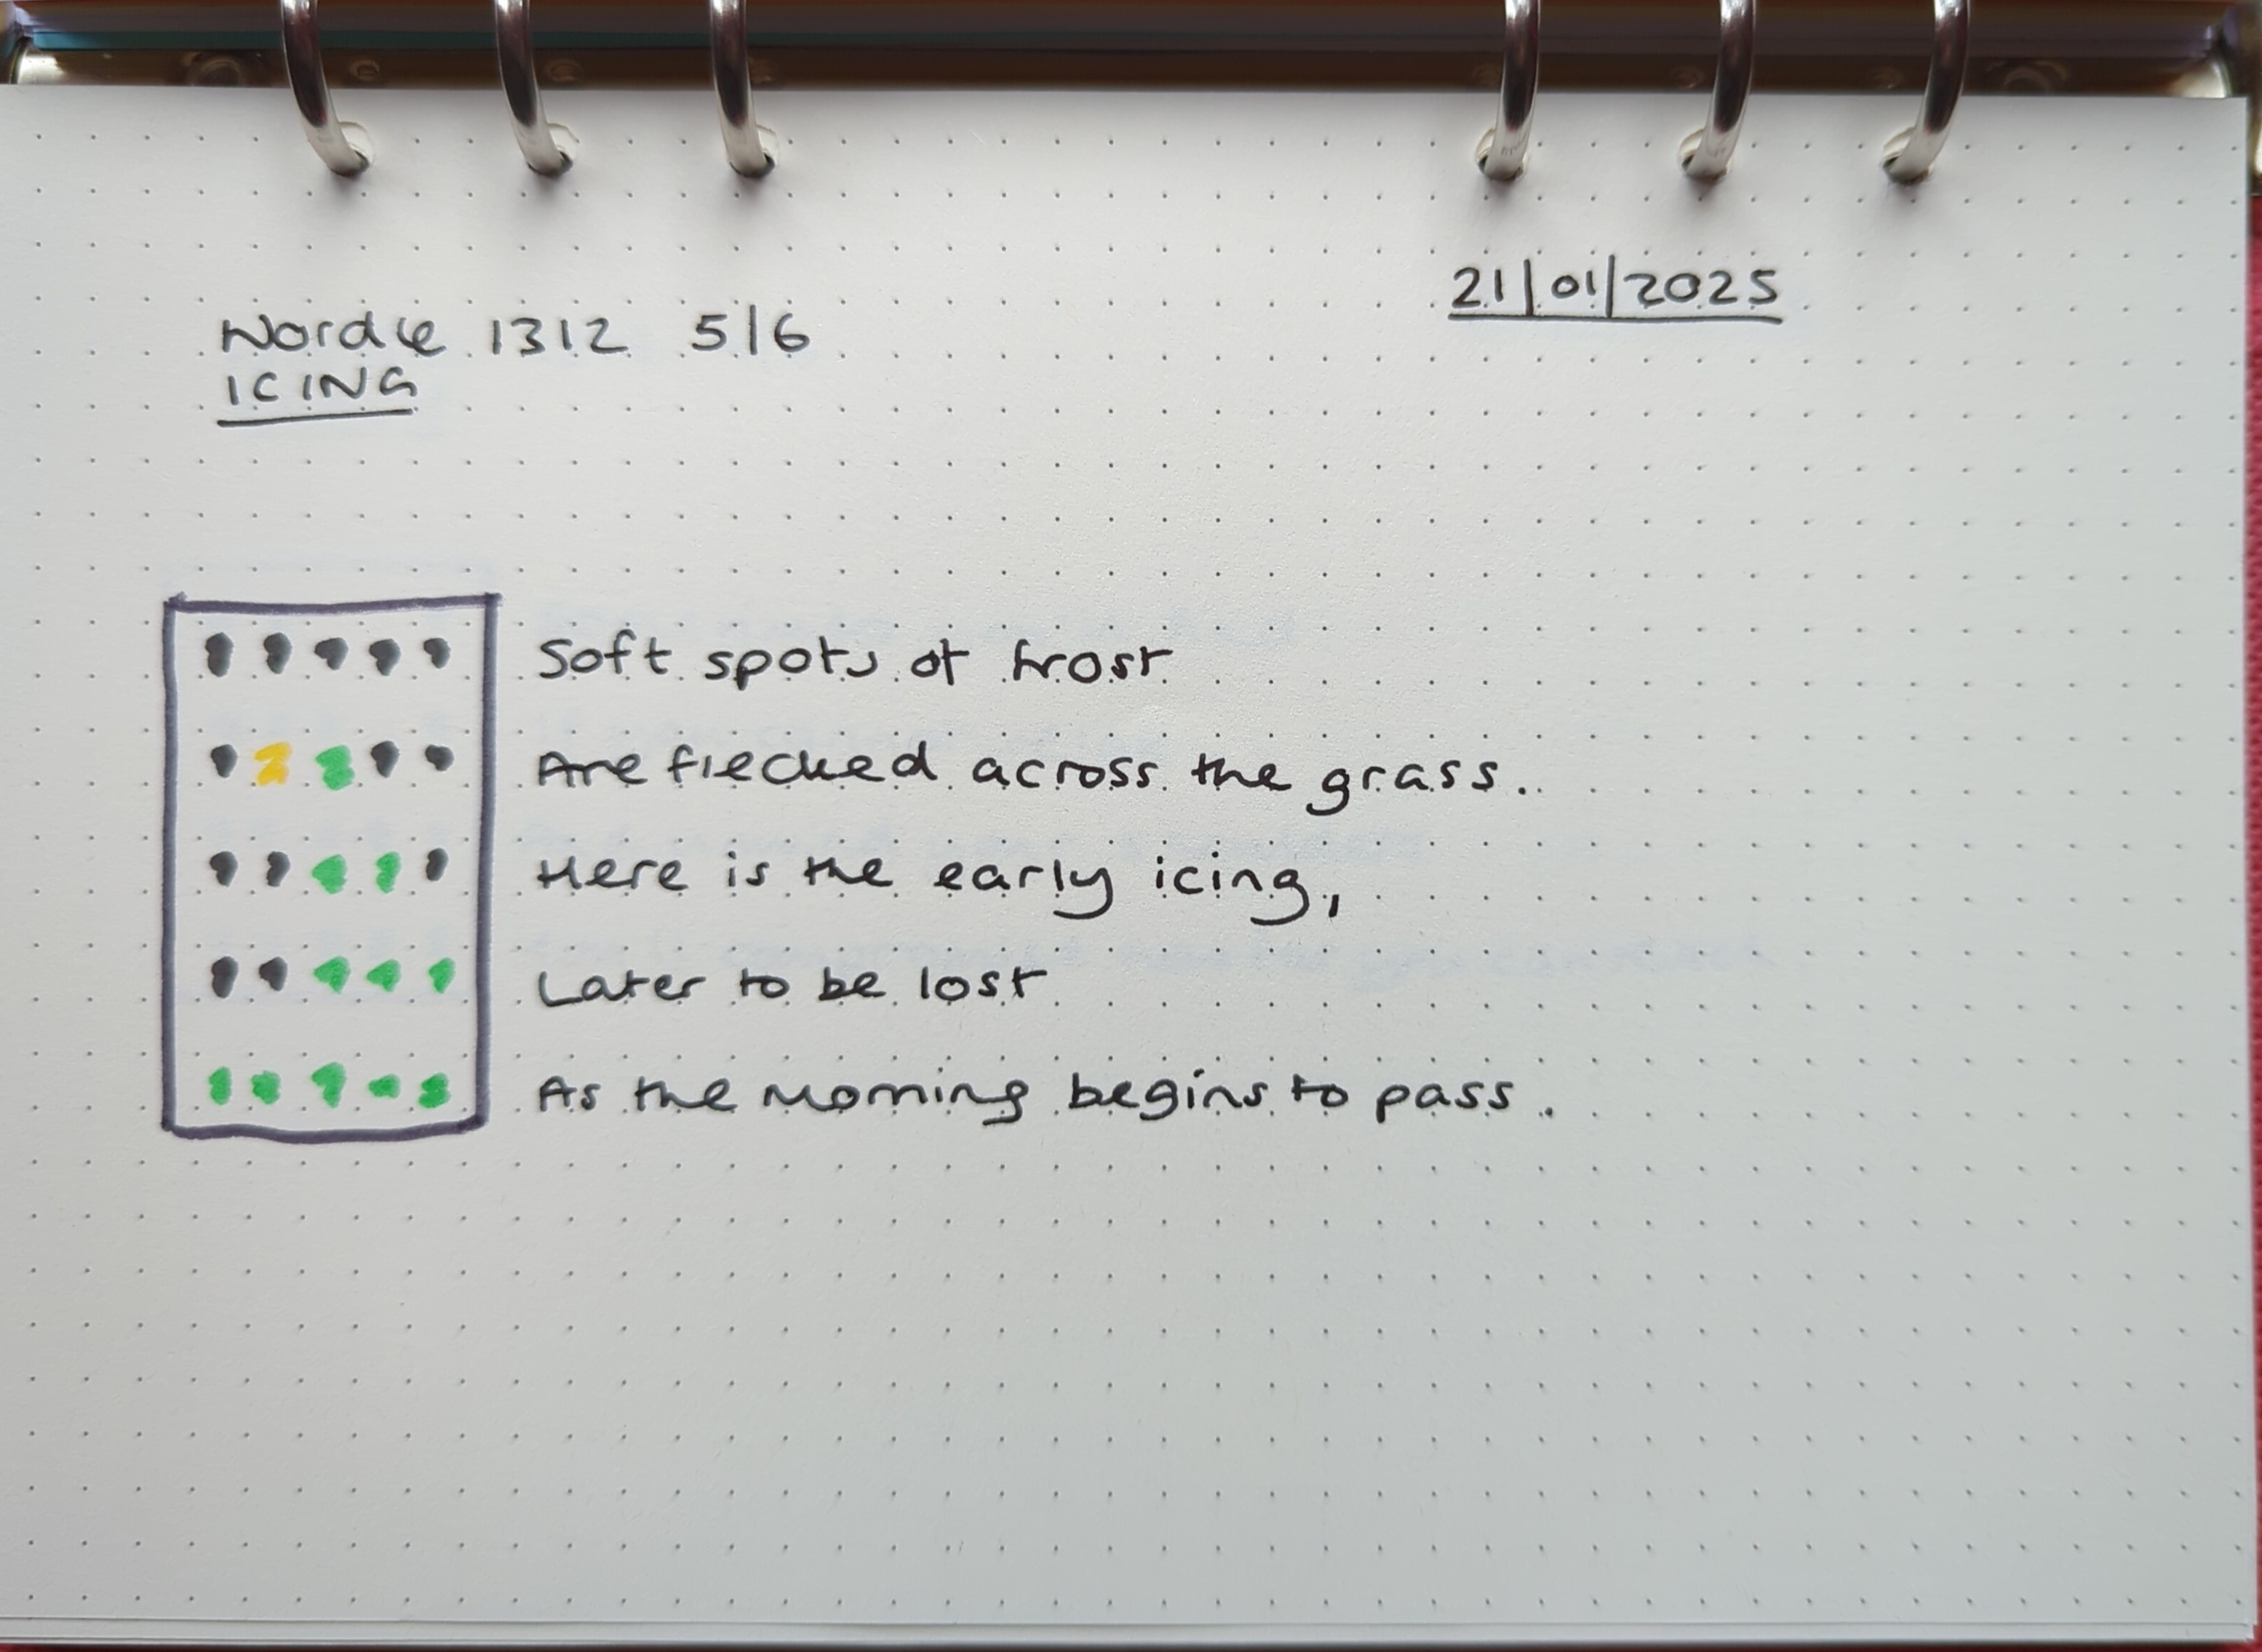 21/01/2025
Wordle 1312 5/6
ICING
Soft spots of frost
Are flecked across the grass.
Here is the early icing,
Later to be lost
As the morning begins to pass.